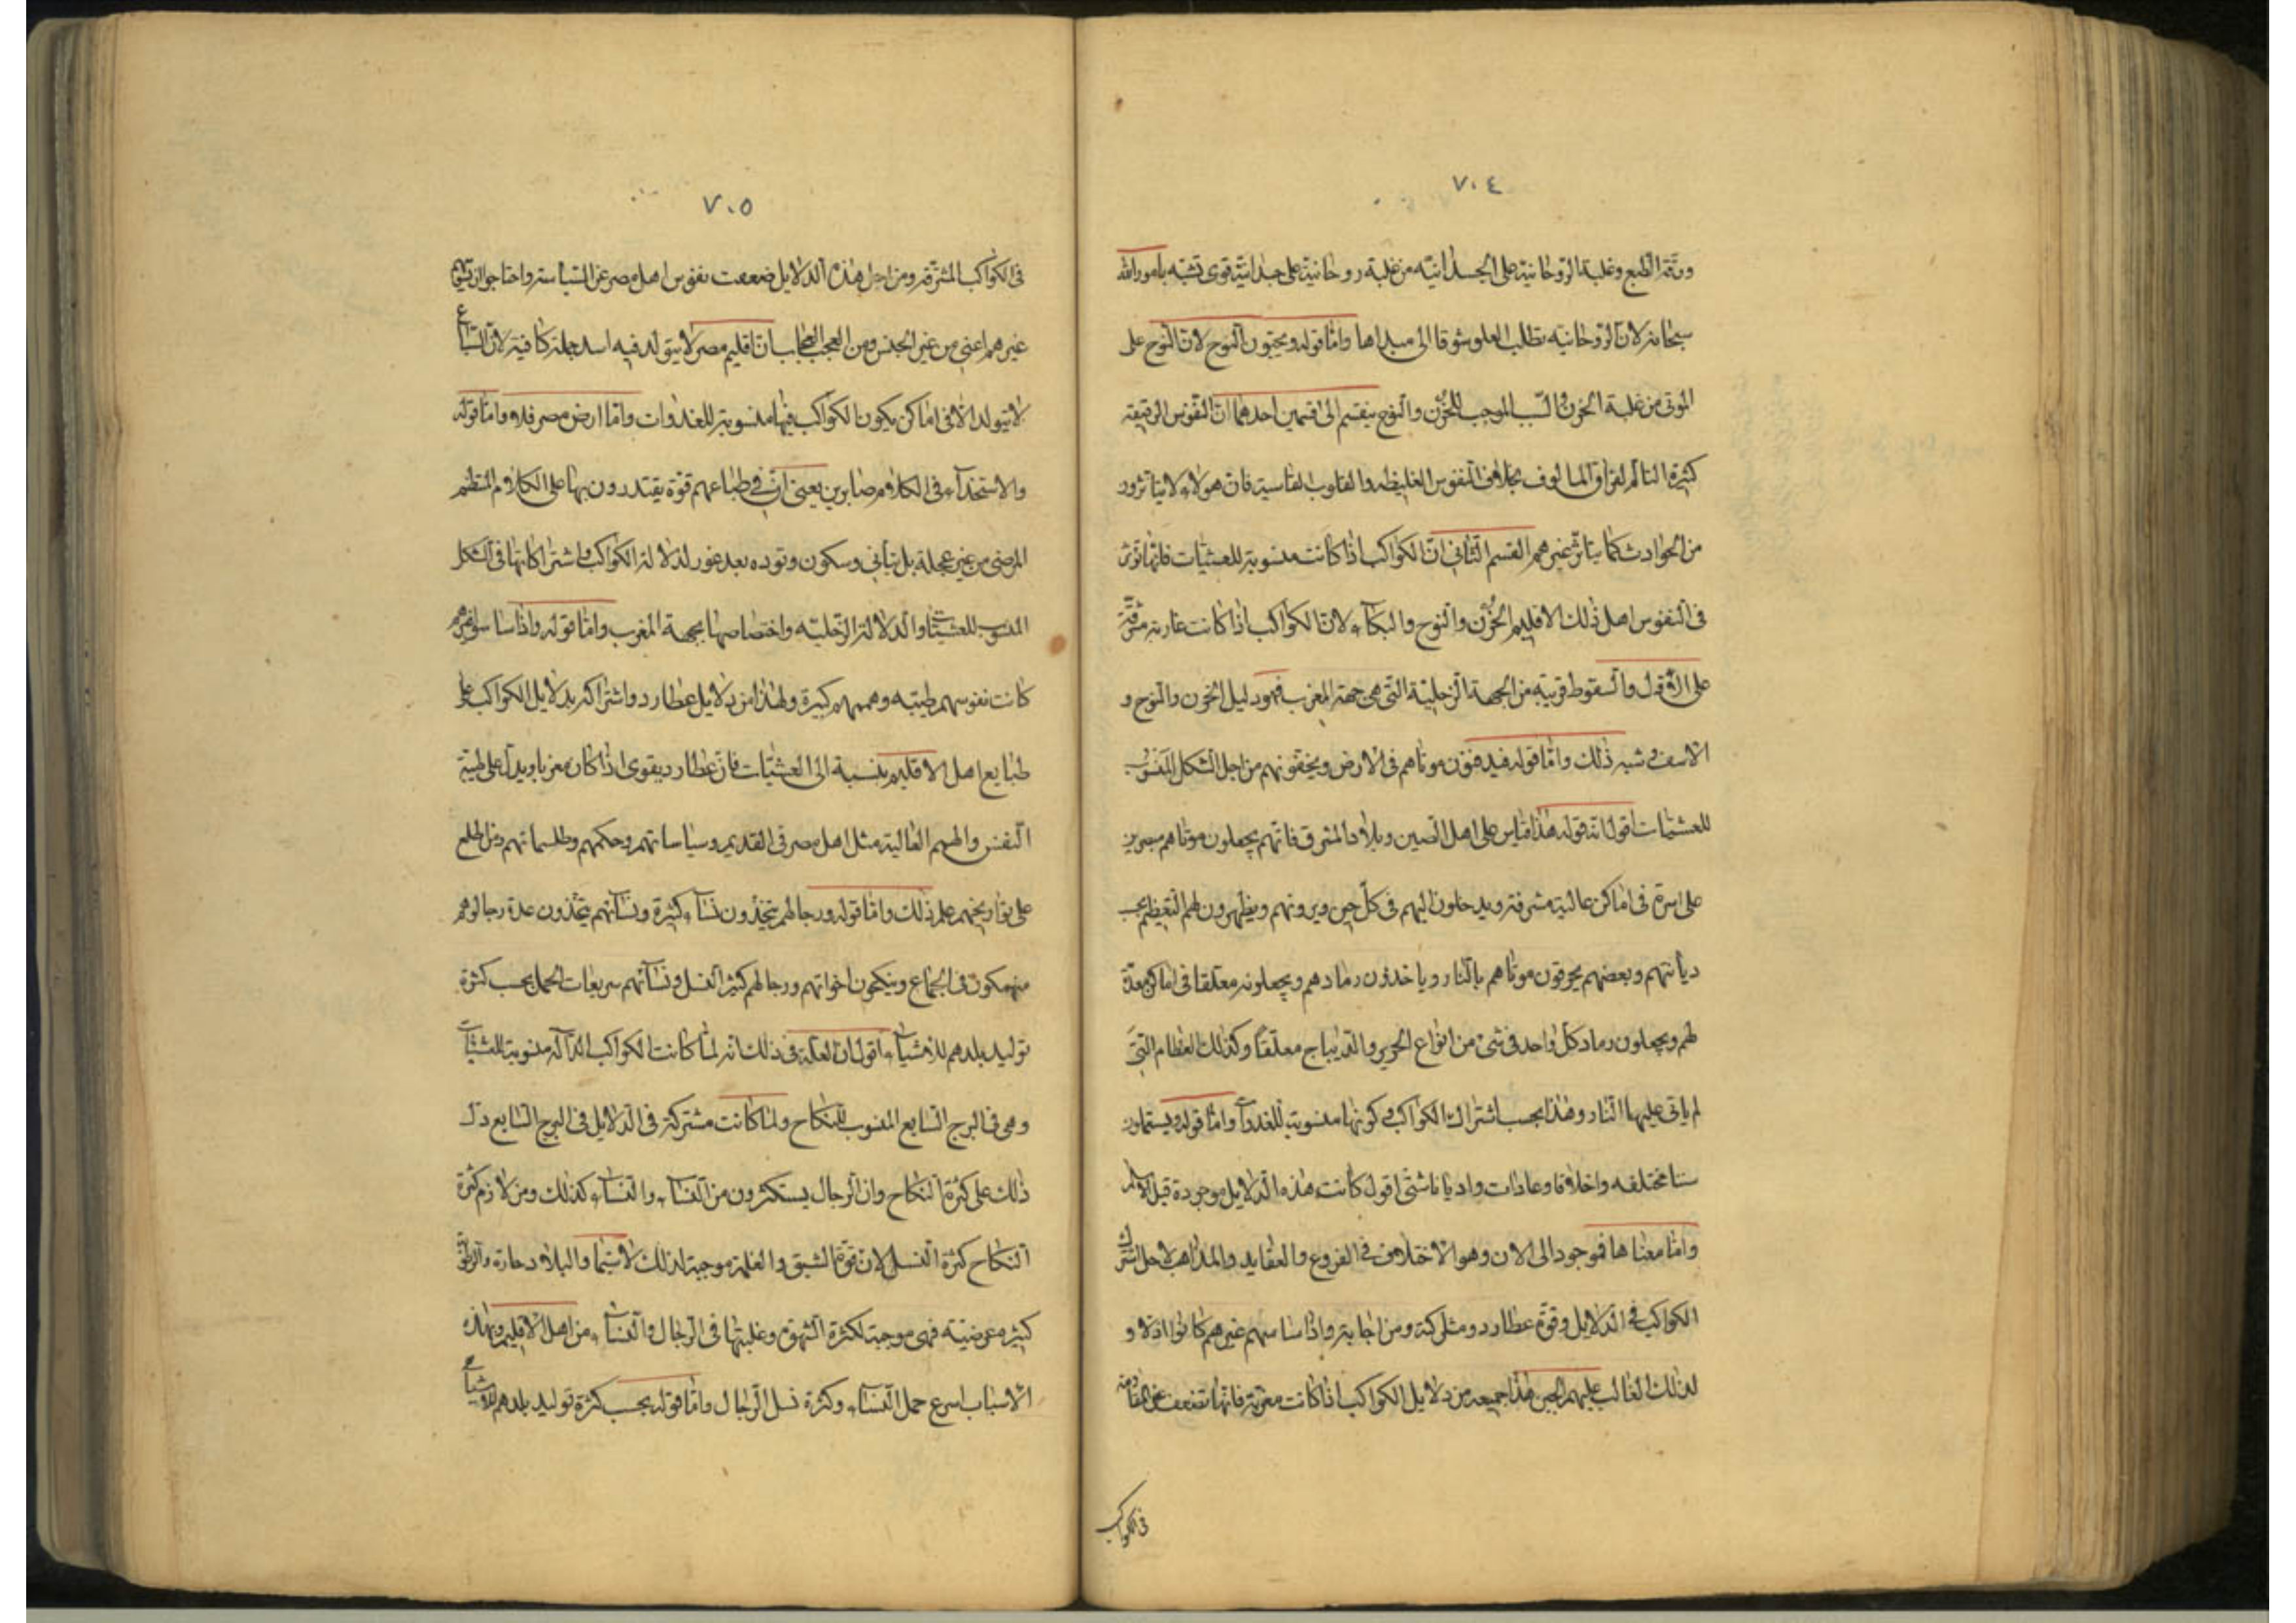 ٧٠٤
ورقة الطبع وغلبة الروحانية على الجسدانية من غلبة روحانية على جسدانية قوى تشبه بامور الله
سبحانه لان الروحانيه تطلب العلو شوقا الى مبداها واما قوله ويحبون النوح لان النوح على
الموتى من غلبة الحزن والسبب الموجب للحزن والنوح ينقسم الى قسمين احدهما ان النفوس الرقيقه
كثيرة التالم لفراق المالوف بخلاف النفوس الغليظه والقلوب القاسية فان هولاء لا يتاثرون
من الحوادث كما يتاثر غيرهم القسم الثاني ان الكواكب اذا كانت منسوبة للعشيات فانها تؤثر
فى النفوس اهل ذلك الاقليم الحزن والنوح والبكاء لان الكواكب اذا كانت غاربة مشرقة
على الافول والسقوط قريبة من الجهة الزحلية التى هى جهة المغرب فهو دليل الحزن والنوح و
الاسف وشبه ذلك واما قوله فيدفنون موتاهم فى الارض ويخفونهم من اجل الشكل المنسوب
للعشيات اقول انه قوله هذا قياس على اهل الصين وبلاد المشرق فانهم يجعلون موتاهم
على اسرة فى اماكن عالية مشرفة ويدخلون اليهم فى كل حين ويرونهم ويظهرون لهم التعظيم بحسب
ديانتهم وبعضهم يحرقون موتاهم بالنار وياخذون رمادهم ويجعلونه معلقا فى اماكن معدة
لهم ويجعلون رماد كل واحد فى شئ من انواع الحرير والديباج معلقا وكذلك العظام التى
لم ياتى عليها النار وهذا بحسب اشتراك الكواكب فى كونها منسوبة للغدوات واما قوله ويستعملون
سننا مختلفه واخلاقا وعادات واديانا شتى اقول كانت هذه الدلايل موجودة قبل الاسلام
واما معناها فموجود الى الان وهو الاختلاف فى الفروع والعقايد والمذاهب لاجل اشتراك
الكواكب فى الدلايل وقوة عطارد ومشاركته ومن اجابته واذا ساسهم غيرهم كانوا اذلاء و
لذلك الغالب عليهم الجبن هذا جميعه من دلايل الكواكب اذا كانت مغربة فانها تضعف عن المقاومة
فى الكواكب
٧٠٥
فى الكواكب المشرقة ومن اجل هذه الدلايل ضعفت نفوس اهل مصر عن السياسة واحتاجوا الى تقديم
غيرهم اعنى من غير الجنس ومن العجب العجاب ان اقليم مصر لا يتولد فيه اسد جملة كافية لان السباع
لا يتولد الا فى اماكن يكون الكواكب فيها منسوبة للغدوات واما ارض مصر فلا واما قوله
والاستخذاء فى الكلام صابرين يعنى ان فى طباعهم قوة يقتدرون بها على الكلام المنتظم
المرضى من غير عجلة بل بتأنى وسكون وتوده بعد غور لدلالة الكواكب واشتراكاتها فى الشكل
المنسوب للعشيات والدلالة الزحلية واختصاصها بجهة المغرب واما قوله واذا ساسوا غيرهم
كانت نفوسهم طيبه وهممهم كبيرة وهذا من دلايل عطارد واشتراكه بدلايل الكواكب على
طبايع اهل الاقليم بنسبة الى العشيات فان عطارد يقوى اذا كان مغربا ويدل على طيبة
النفس والهمم العالية مثل اهل مصر فى القديم وسياساتهم وحكمهم وطلسماتهم ومن اطلع
على تواريخهم علم ذلك واما قوله ورجالهم يتخذون نساء كثيرة ونسائهم يتخذون عدة رجال وهم
منهمكون فى الجماع وينكحون اخواتهم ورجالهم كثير النسل ونسائهم سريعات الحمل بحسب كثرة
توليد بلدهم للاشياء اقول ان العلة فى ذلك انه لما كانت الكواكب الدالة منسوبة للعشيات
وهى فى البرج السابع المنسوب للنكاح ولما كانت مشتركة فى الدلايل فى البرج السابع دل
ذلك على كثرة النكاح وان الرجال يستكثرون من النساء والنساء كذلك ومن لازم كثرة
النكاح كثرة النسل لان قوة الشبق والغلمة موجبة لذلك لا سيما والبلاد حارة والرطوبة
كثيره عرضية فهى موجبة لكثرة الشهوة وغلبتها فى الرجال والنساء من اهل الاقليم وبهذه
الاسباب اسرع حمل النساء وكثرة نسل الرجال واما قوله بحسب كثرة توليد بلدهم للاشياء